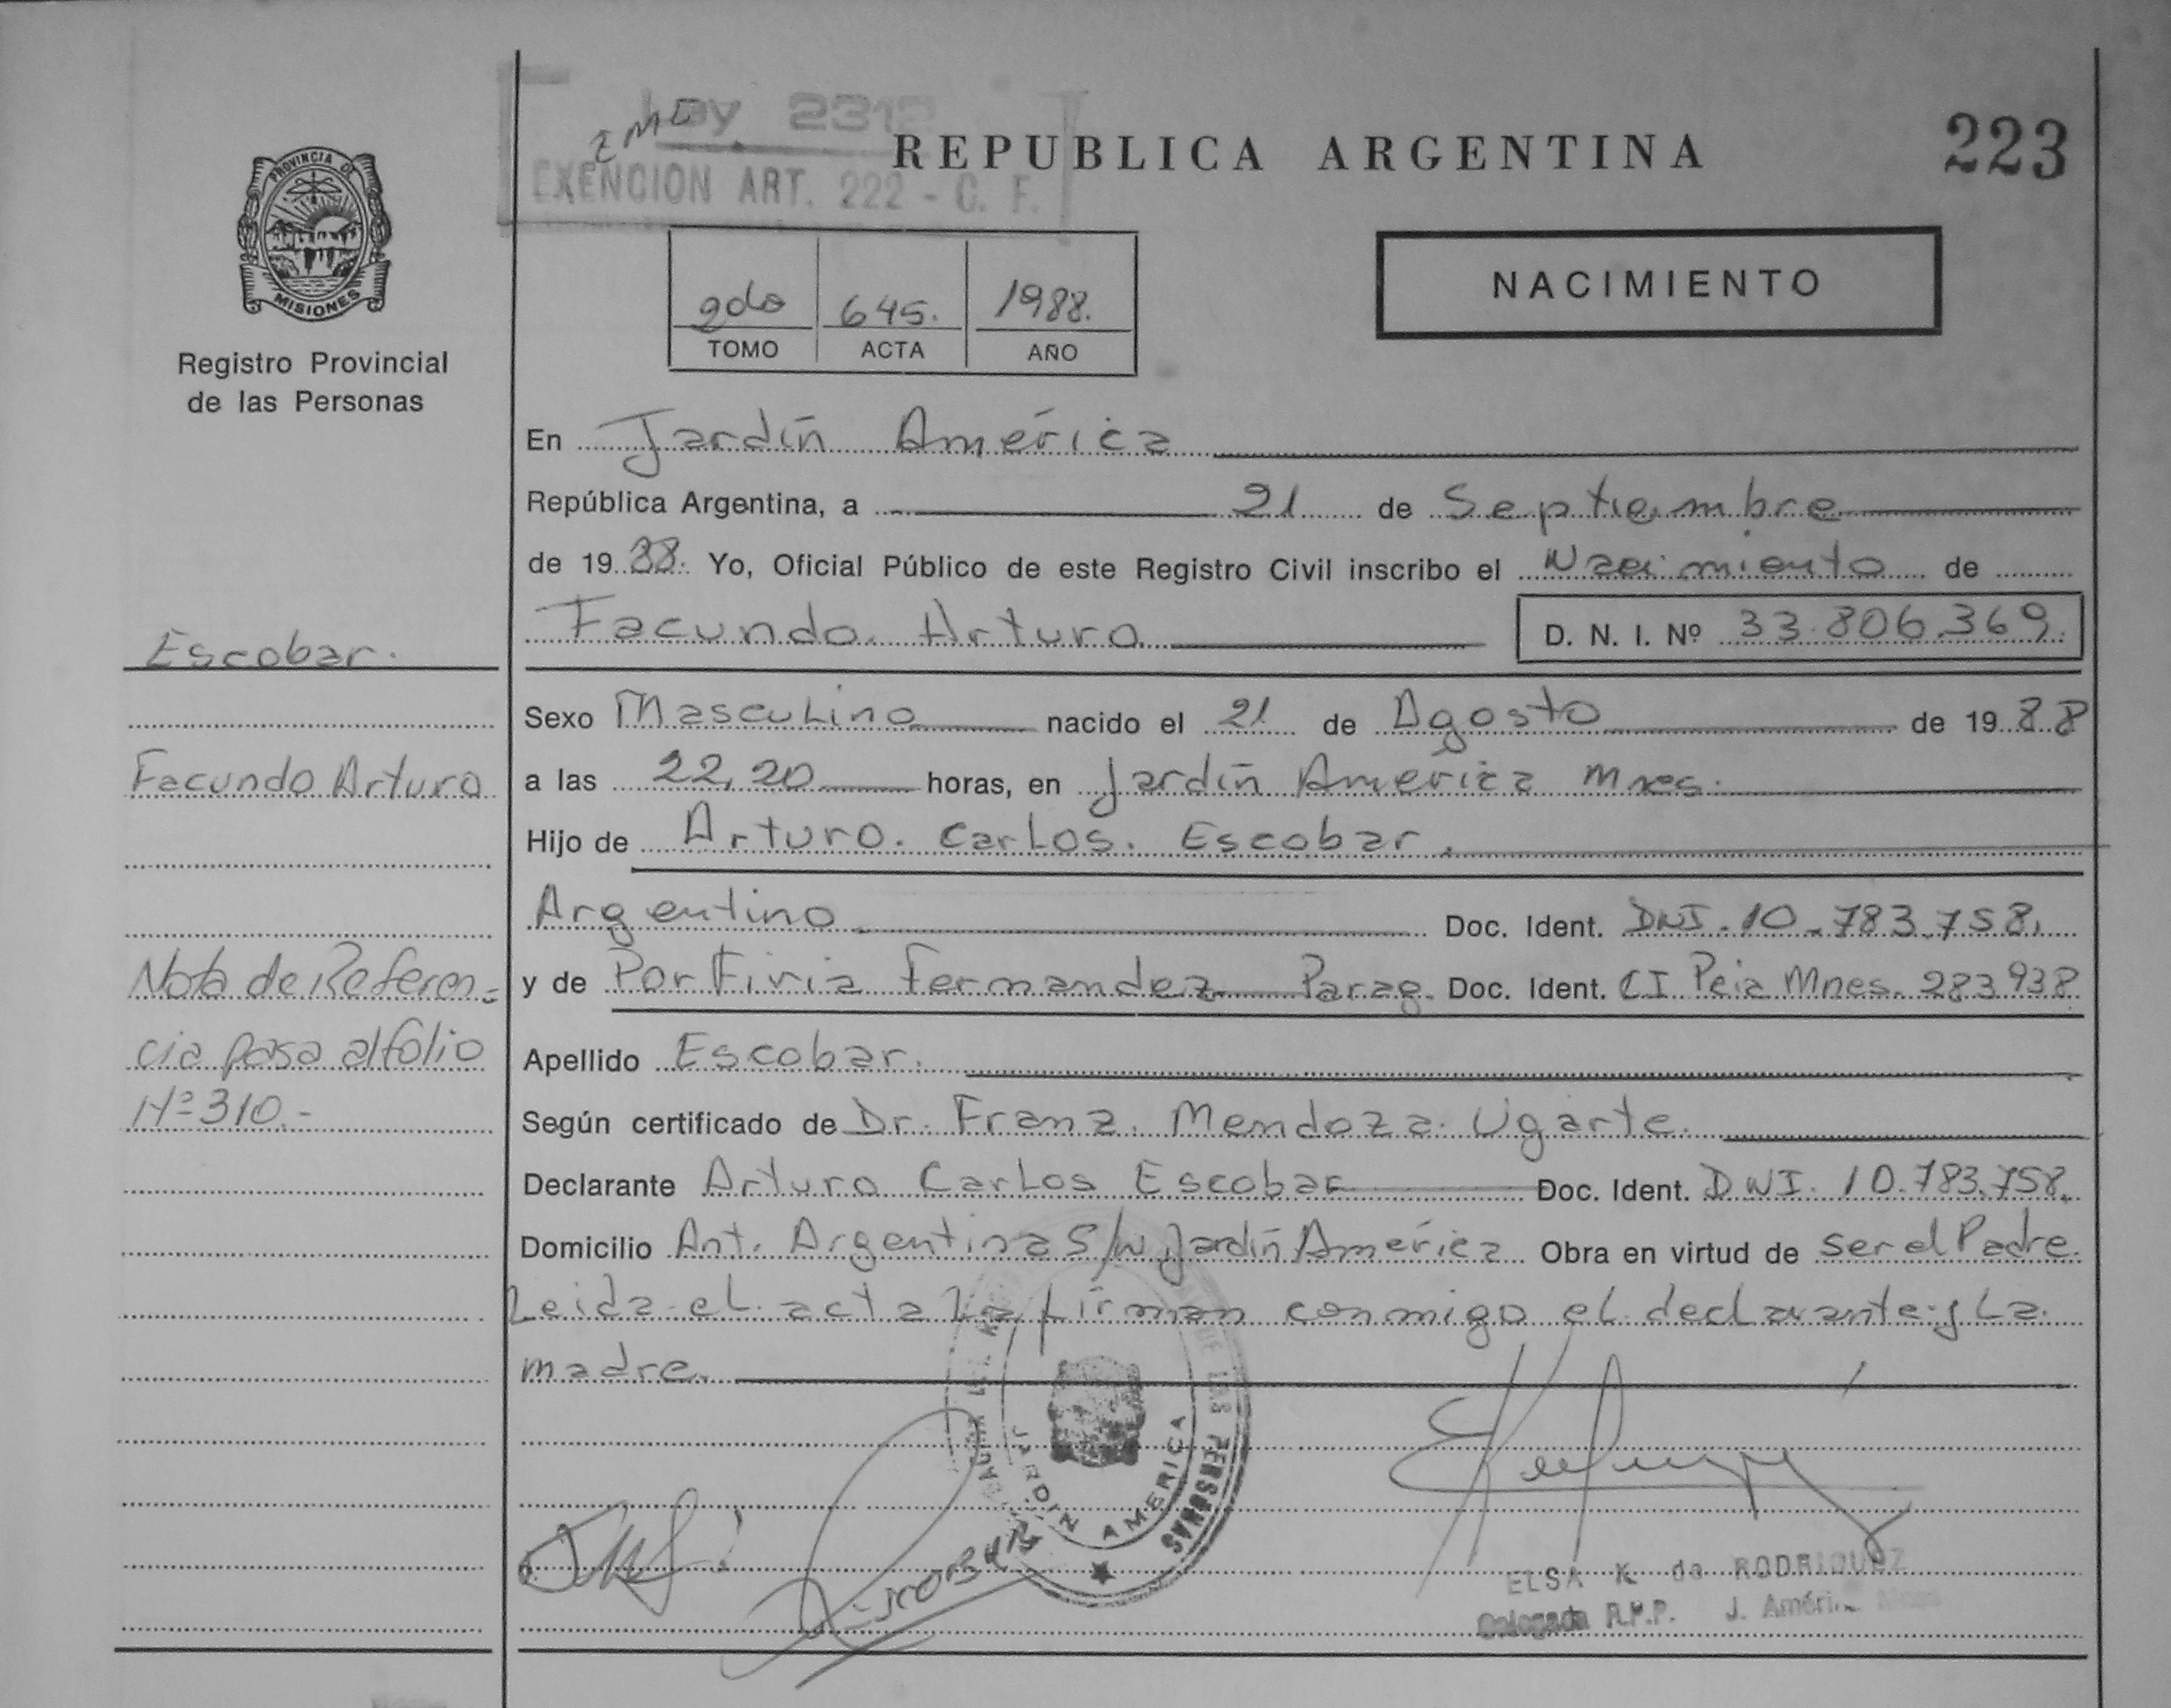 Ley 2312
EXENCION ART. 222 - C. F.
REPUBLICA ARGENTINA
223
PROVINCIA DE
MISIONES
Registro Provincial
de las Personas
2do 645. 1988.
TOMO ACTA AÑO
NACIMIENTO
En Jardín América
República Argentina, a 21 de Septiembre
de 19 88. Yo, Oficial Público de este Registro Civil inscribo el Nacimiento de
Escobar.
Facundo Arturo D. N. I. Nº 33.806.369.
Sexo Masculino nacido el 21 de Agosto de 19 88
Facundo Arturo
a las 22,20 horas, en Jardín America Mnes.
Hijo de Arturo. Carlos. Escobar.
Argentino Doc. Ident. DNI. 10.783.758.
Nota de Referen-
cia pasa al folio
Nº 310.-
y de Porfiria Fernandez Parag. Doc. Ident. CI Pcia Mnes. 283938
Apellido Escobar.
Según certificado de Dr. Franz. Mendoza. Ugarte.
Declarante Arturo Carlos Escobar Doc. Ident. DNI. 10.783.758.
Domicilio Ant. Argentina S/N Jardín América Obra en virtud de ser el Padre.
Leida el acta la firman conmigo el declarante y La
madre.
DE LAS PERSONAS
JARDIN AMERICA
ESCOBAR
ELSA K de RODRIGUEZ
Delegada R.P.P. J. Améri..